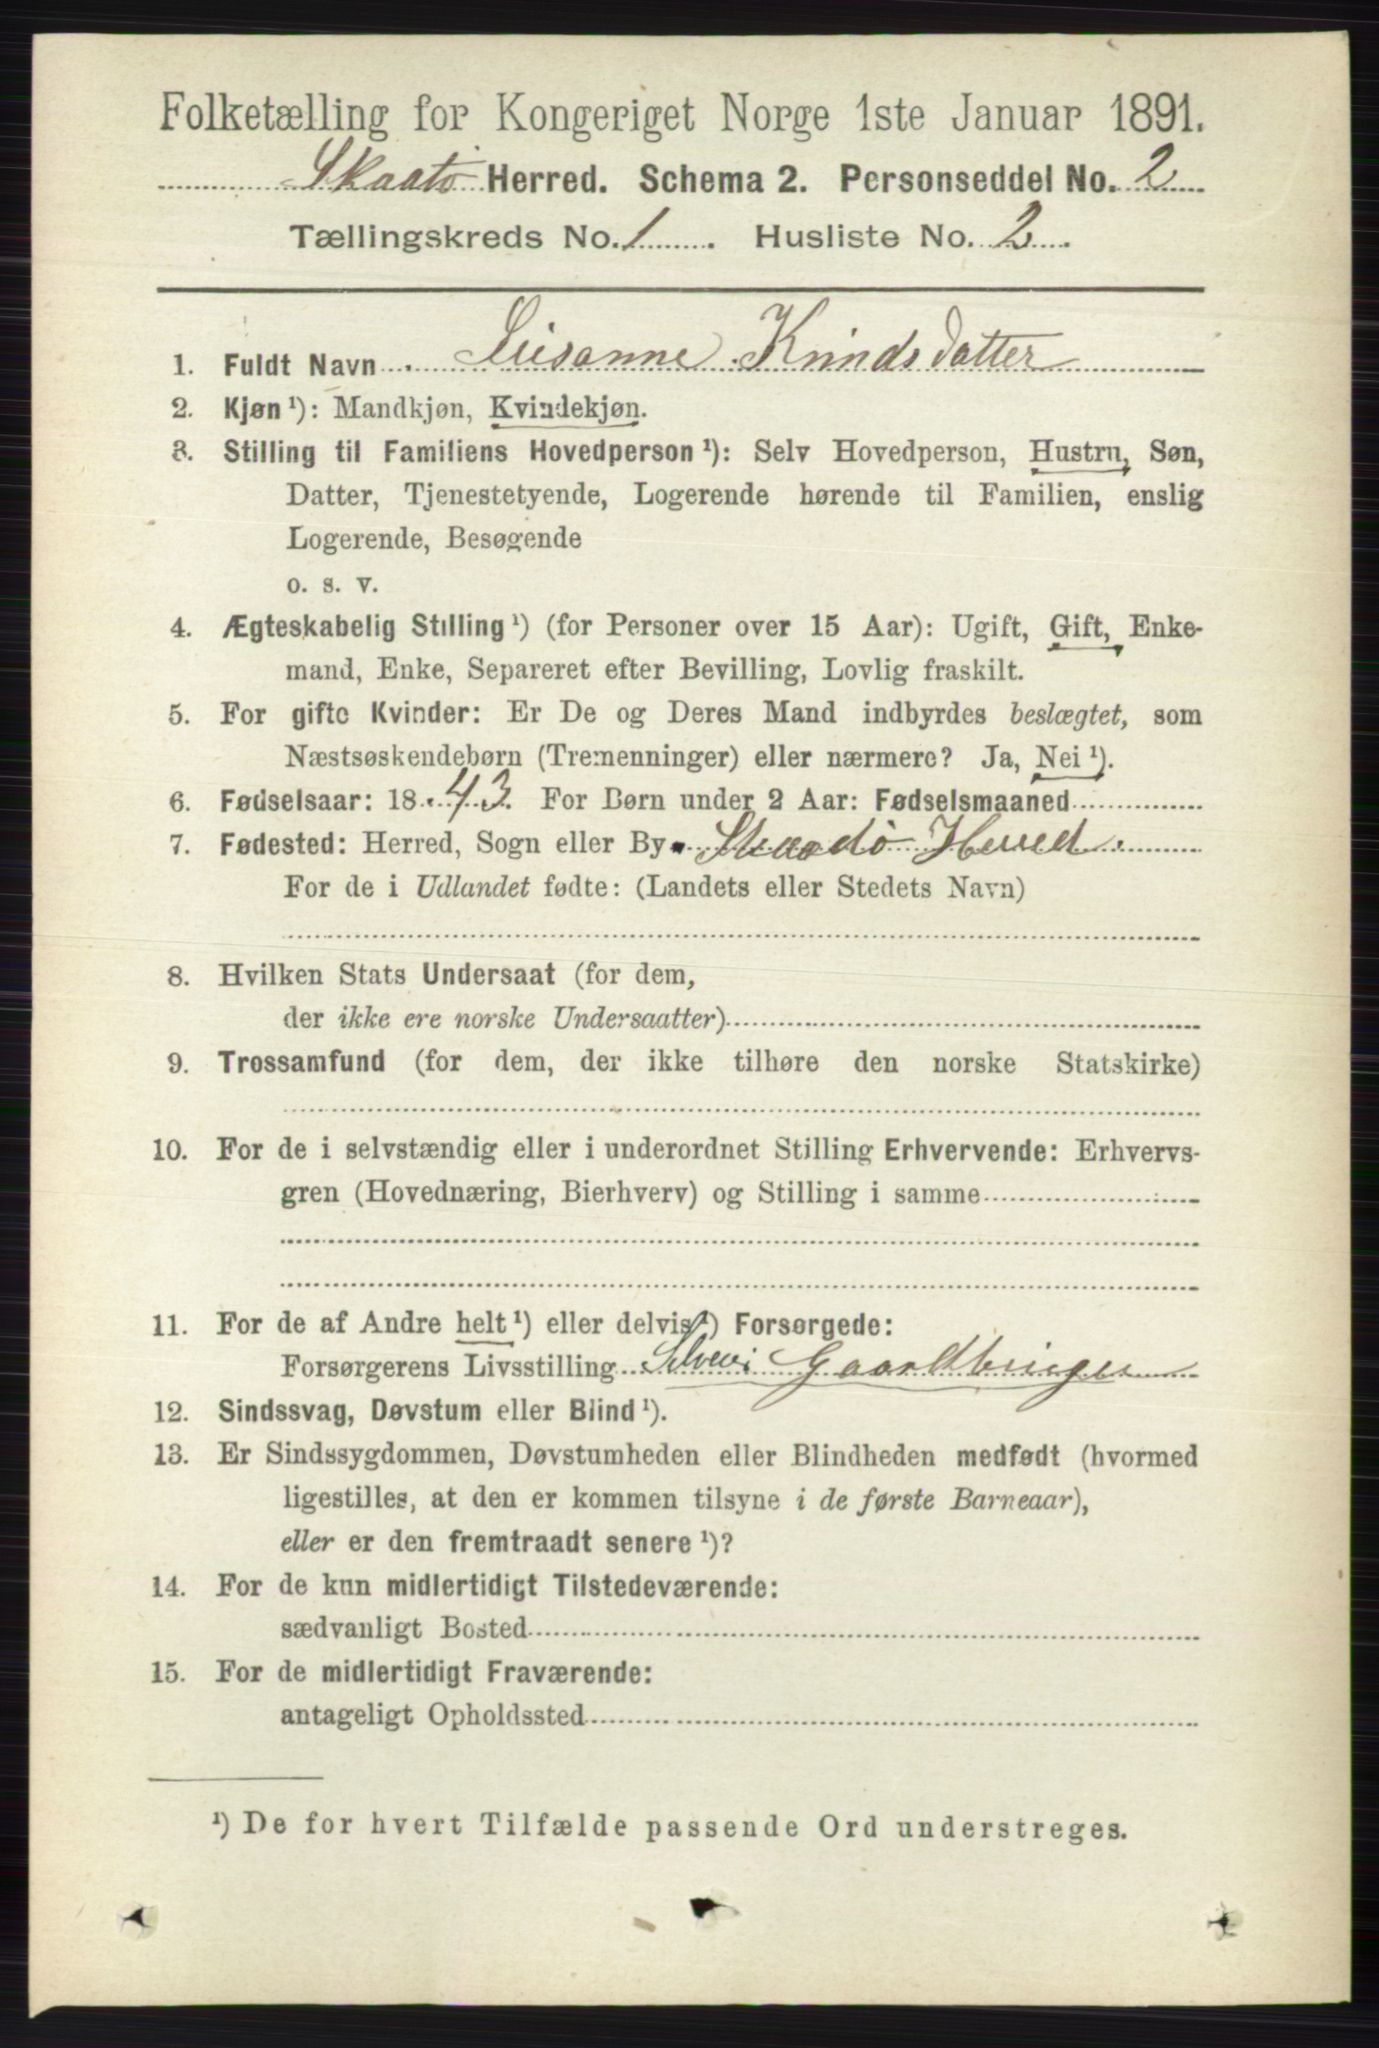 Folketælling for Kongeriget Norge 1ste Januar 1891.
Skaatö Herred. Schema 2. Personseddel No. 2
Tællingskreds No. 1. Husliste No. 2.
1. Fuldt Navn Susanne Knudsdatter
2. Kjøn ¹): Mandkjøn, Kvindekjøn.
3. Stilling til Familiens Hovedperson ¹): Selv Hovedperson, Hustru, Søn,
Datter, Tjenestetyende, Logerende hørende til Familien, enslig
Logerende, Besøgende
o. s. v.
4. Ægteskabelig Stilling ¹) (for Personer over 15 Aar): Ugift, Gift, Enke-
mand, Enke, Separeret efter Bevilling, Lovlig fraskilt.
5. For gifte Kvinder: Er De og Deres Mand indbyrdes beslægtet, som
Næstsøskendebørn (Tremenninger) eller nærmere? Ja, Nei ¹).
6. Fødselsaar: 1843. For Børn under 2 Aar: Fødselsmaaned
7. Fødested: Herred, Sogn eller By Skaadö Herred.
For de i Udlandet fødte: (Landets eller Stedets Navn)
8. Hvilken Stats Undersaat (for dem,
der ikke ere norske Undersaatter)
9. Trossamfund (for dem, der ikke tilhøre den norske Statskirke)
10. For de i selvstændig eller i underordnet Stilling Erhvervende: Erhvervs-
gren (Hovednæring, Bierhverv) og Stilling i samme
11. For de af Andre helt ¹) eller delvis ¹) Forsørgede:
Forsørgerens Livsstilling Selveier Gaardbruger
12. Sindssvag, Døvstum eller Blind ¹).
13. Er Sindssygdommen, Døvstumheden eller Blindheden medfødt (hvormed
ligestilles, at den er kommen tilsyne i de første Barneaar),
eller er den fremtraadt senere ¹)?
14. For de kun midlertidigt Tilstedeværende:
sædvanligt Bosted
15. For de midlertidigt Fraværende:
antageligt Opholdssted
¹) De for hvert Tilfælde passende Ord understreges.